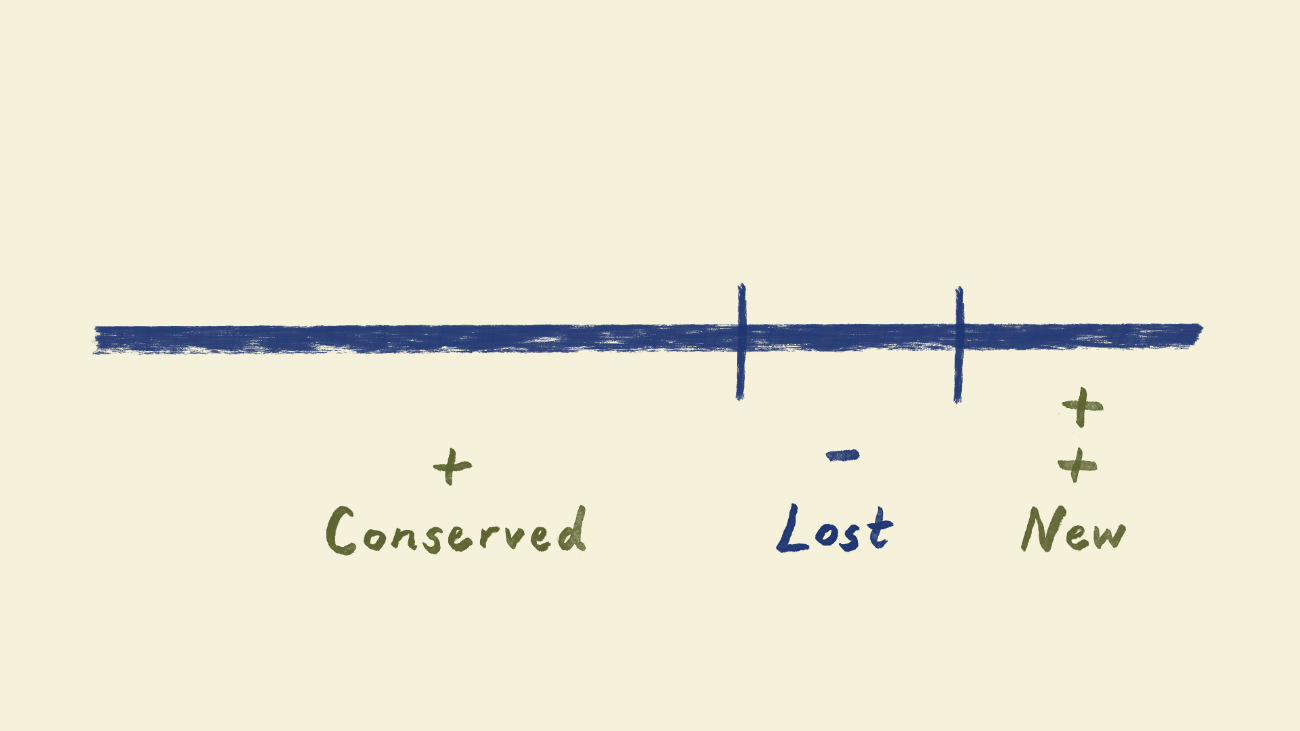 +
+ - +
Conserved Lost New